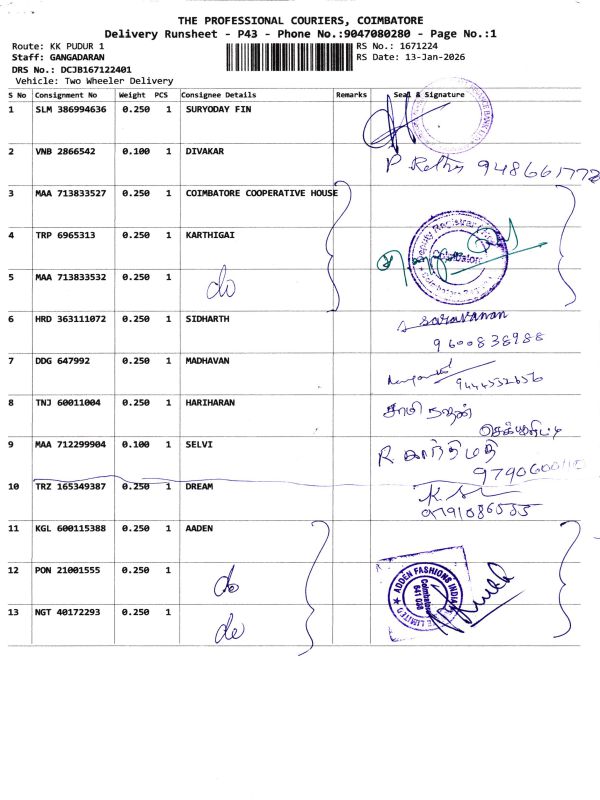 THE PROFESSIONAL COURIERS, COIMBATORE
Delivery Runsheet - P43 - Phone No.:9047080280 - Page No.:1
Route: KK PUDUR 1
RS No.: 1671224
Staff: GANGADARAN
RS Date: 13-Jan-2026
DRS No.: DCJB167122401
Vehicle: Two Wheeler Delivery
S No Consignment No Weight PCS Consignee Details Remarks Seal & Signature
1 SLM 386994636 0.250 1 SURYODAY FIN
2 VNB 2866542 0.100 1 DIVAKAR
9486617772
3 MAA 713833527 0.250 1 COIMBATORE COOPERATIVE HOUSE
4 TRP 6965313 0.250 1 KARTHIGAI
5 MAA 713833532 0.250 1 do
6 HRD 363111072 0.250 1 SIDHARTH
s saravanan
9600838988
7 DDG 647992 0.250 1 MADHAVAN
9444532656
8 TNJ 60011004 0.250 1 HARIHARAN
சாமிநாதன்
செக்யூரிட்டி
9 MAA 712299904 0.100 1 SELVI
R கார்திமதி
10 TRZ 165349387 0.250 1 DREAM
11 KGL 600115388 0.250 1 AADEN
12 PON 21001555 0.250 1 do
ADDEN FASHIONS INDIA
Coimbatore
641 038
13 NGT 40172293 0.250 1 do